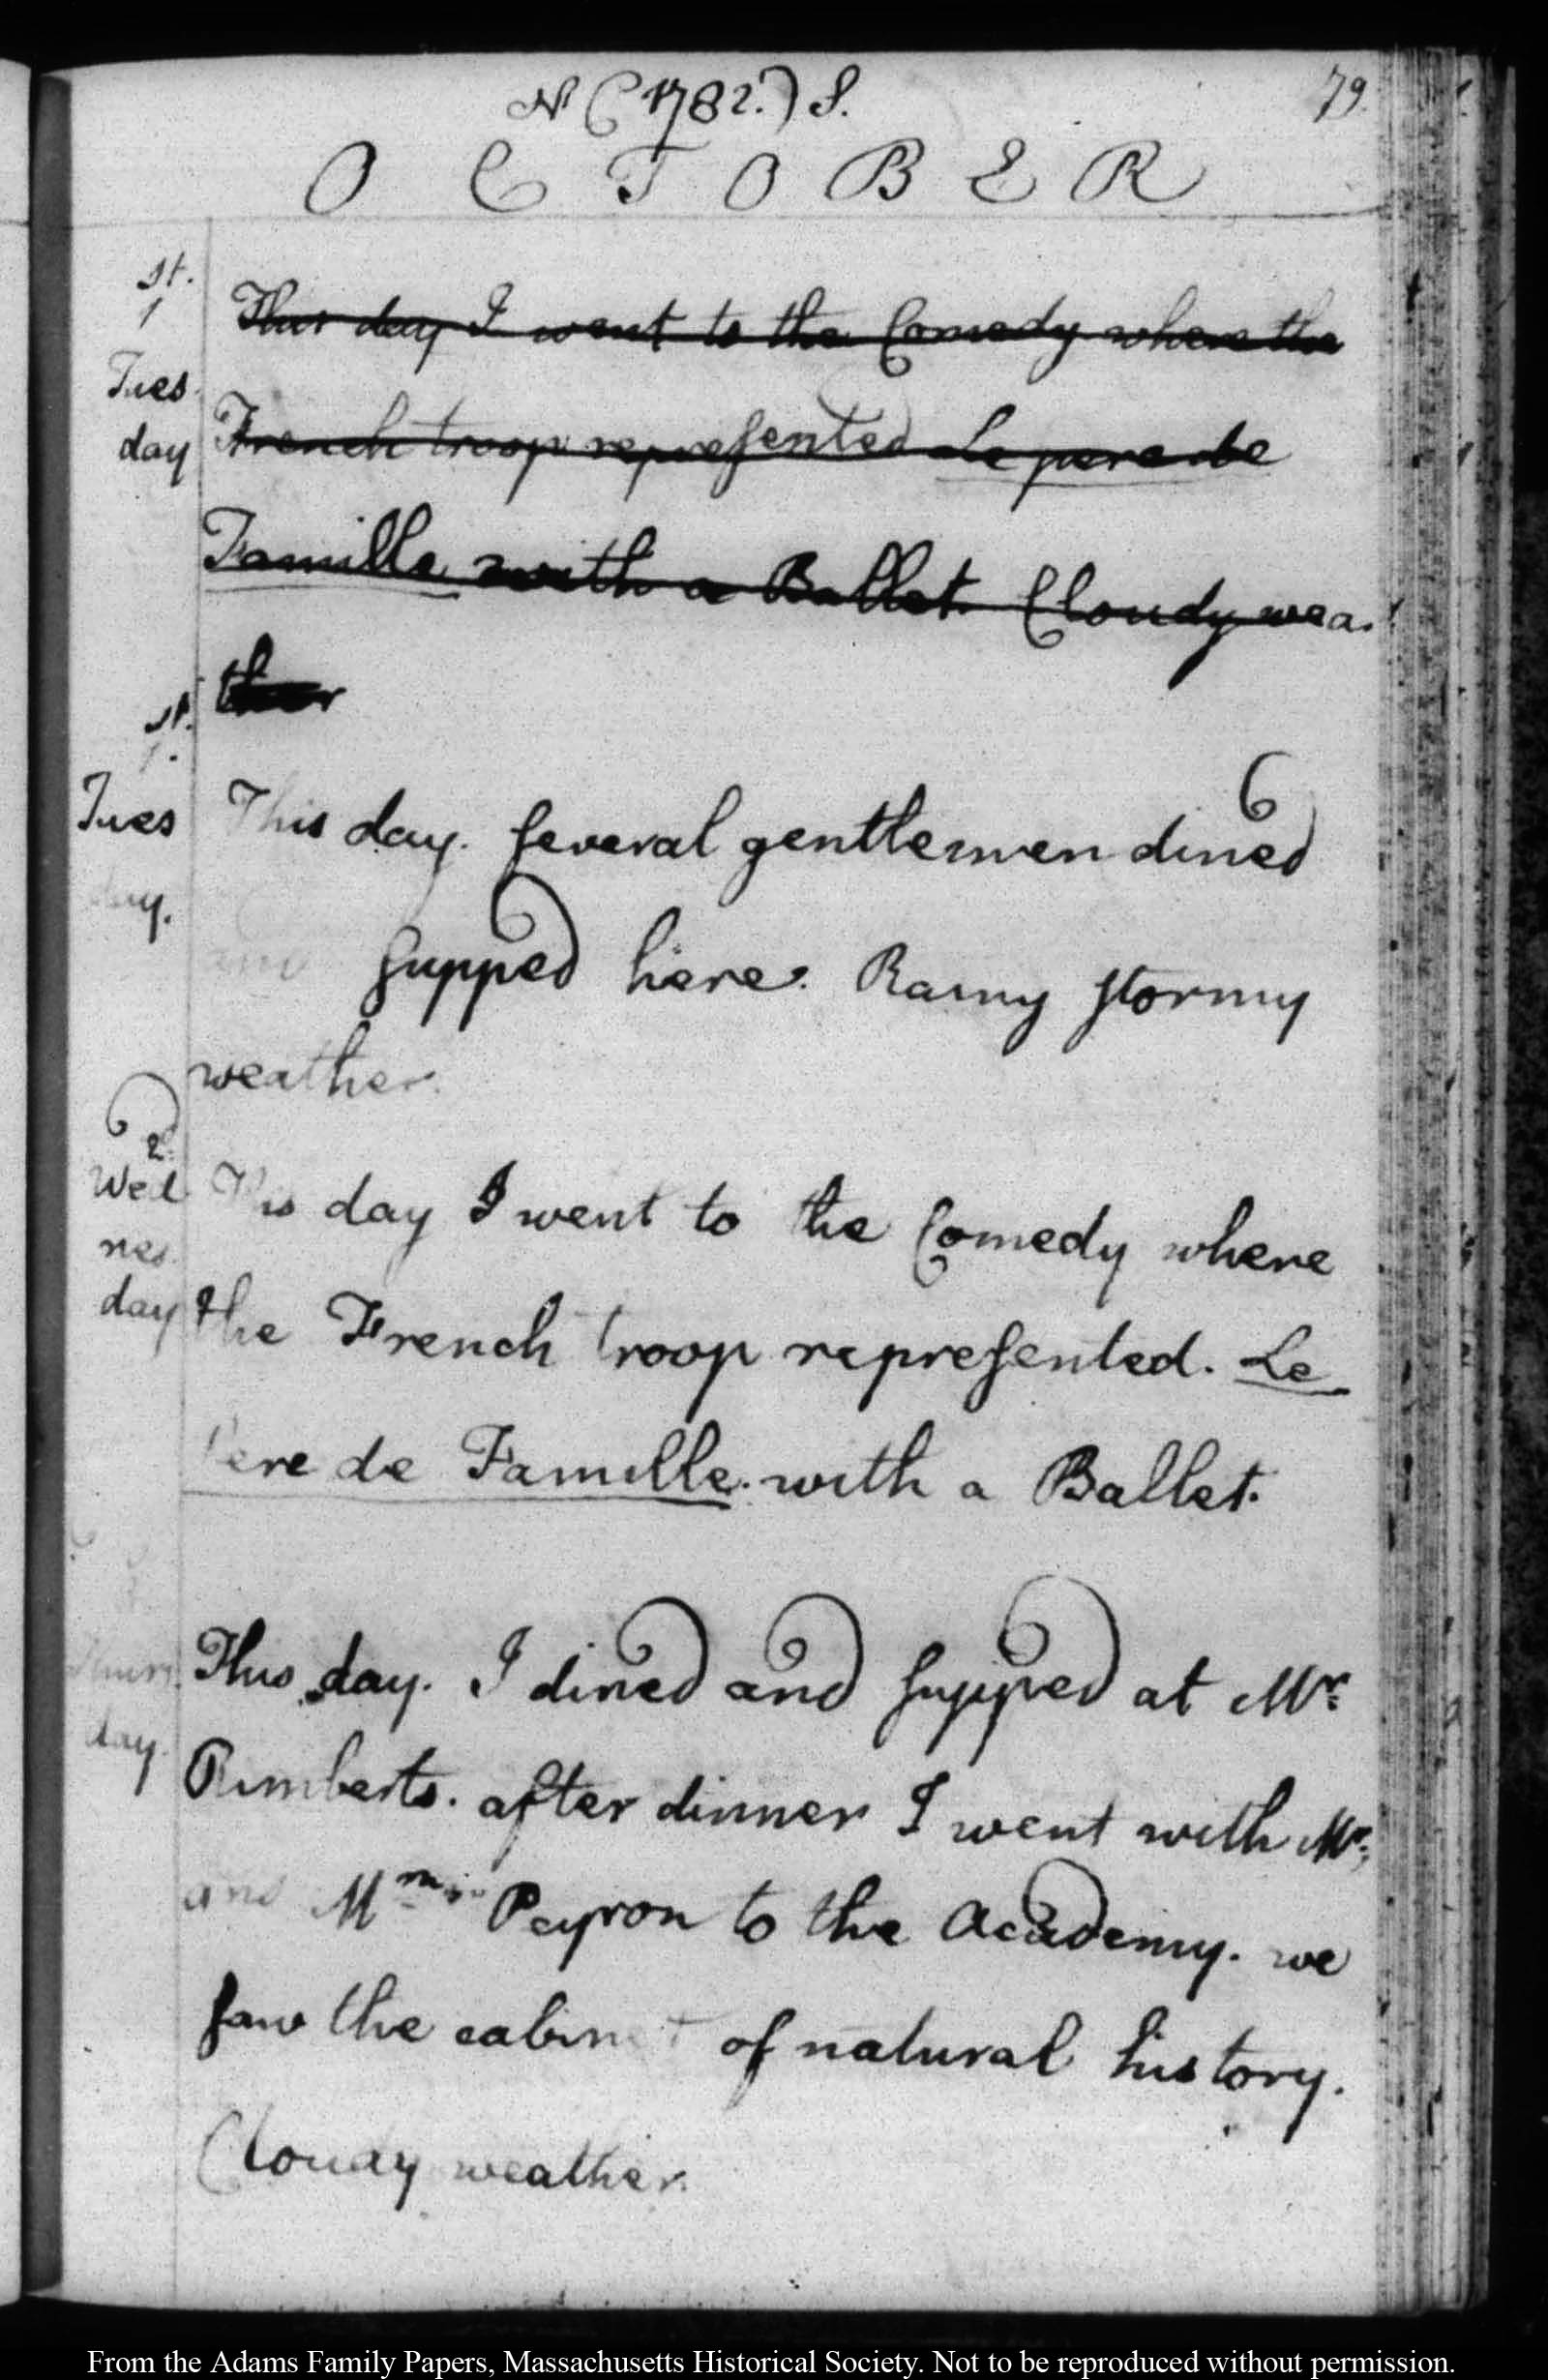 N (1782.) S.
79.
OCTOBER
st.
1
Tues
day
This day I went to the Comedy where the
French troop represented Le pere de
Famille with a Ballet. Cloudy wea-
ther
st.
1.
Tues
day.
This day. several gentlemen dined
and supped here. Rainy stormy
weather.
d
2
Wed
nes
day
This day I went to the Comedy where
the French troop represented. Le
Pere de Famille. with a Ballet.
Thurs
day.
This day. I dined and supped at Mr.
Rimberts. after dinner I went with Mr.
and Mme. Peyron to the Academy. we
saw the cabinet of natural history.
Cloudy weather.
From the Adams Family Papers, Massachusetts Historical Society. Not to be reproduced without permission.